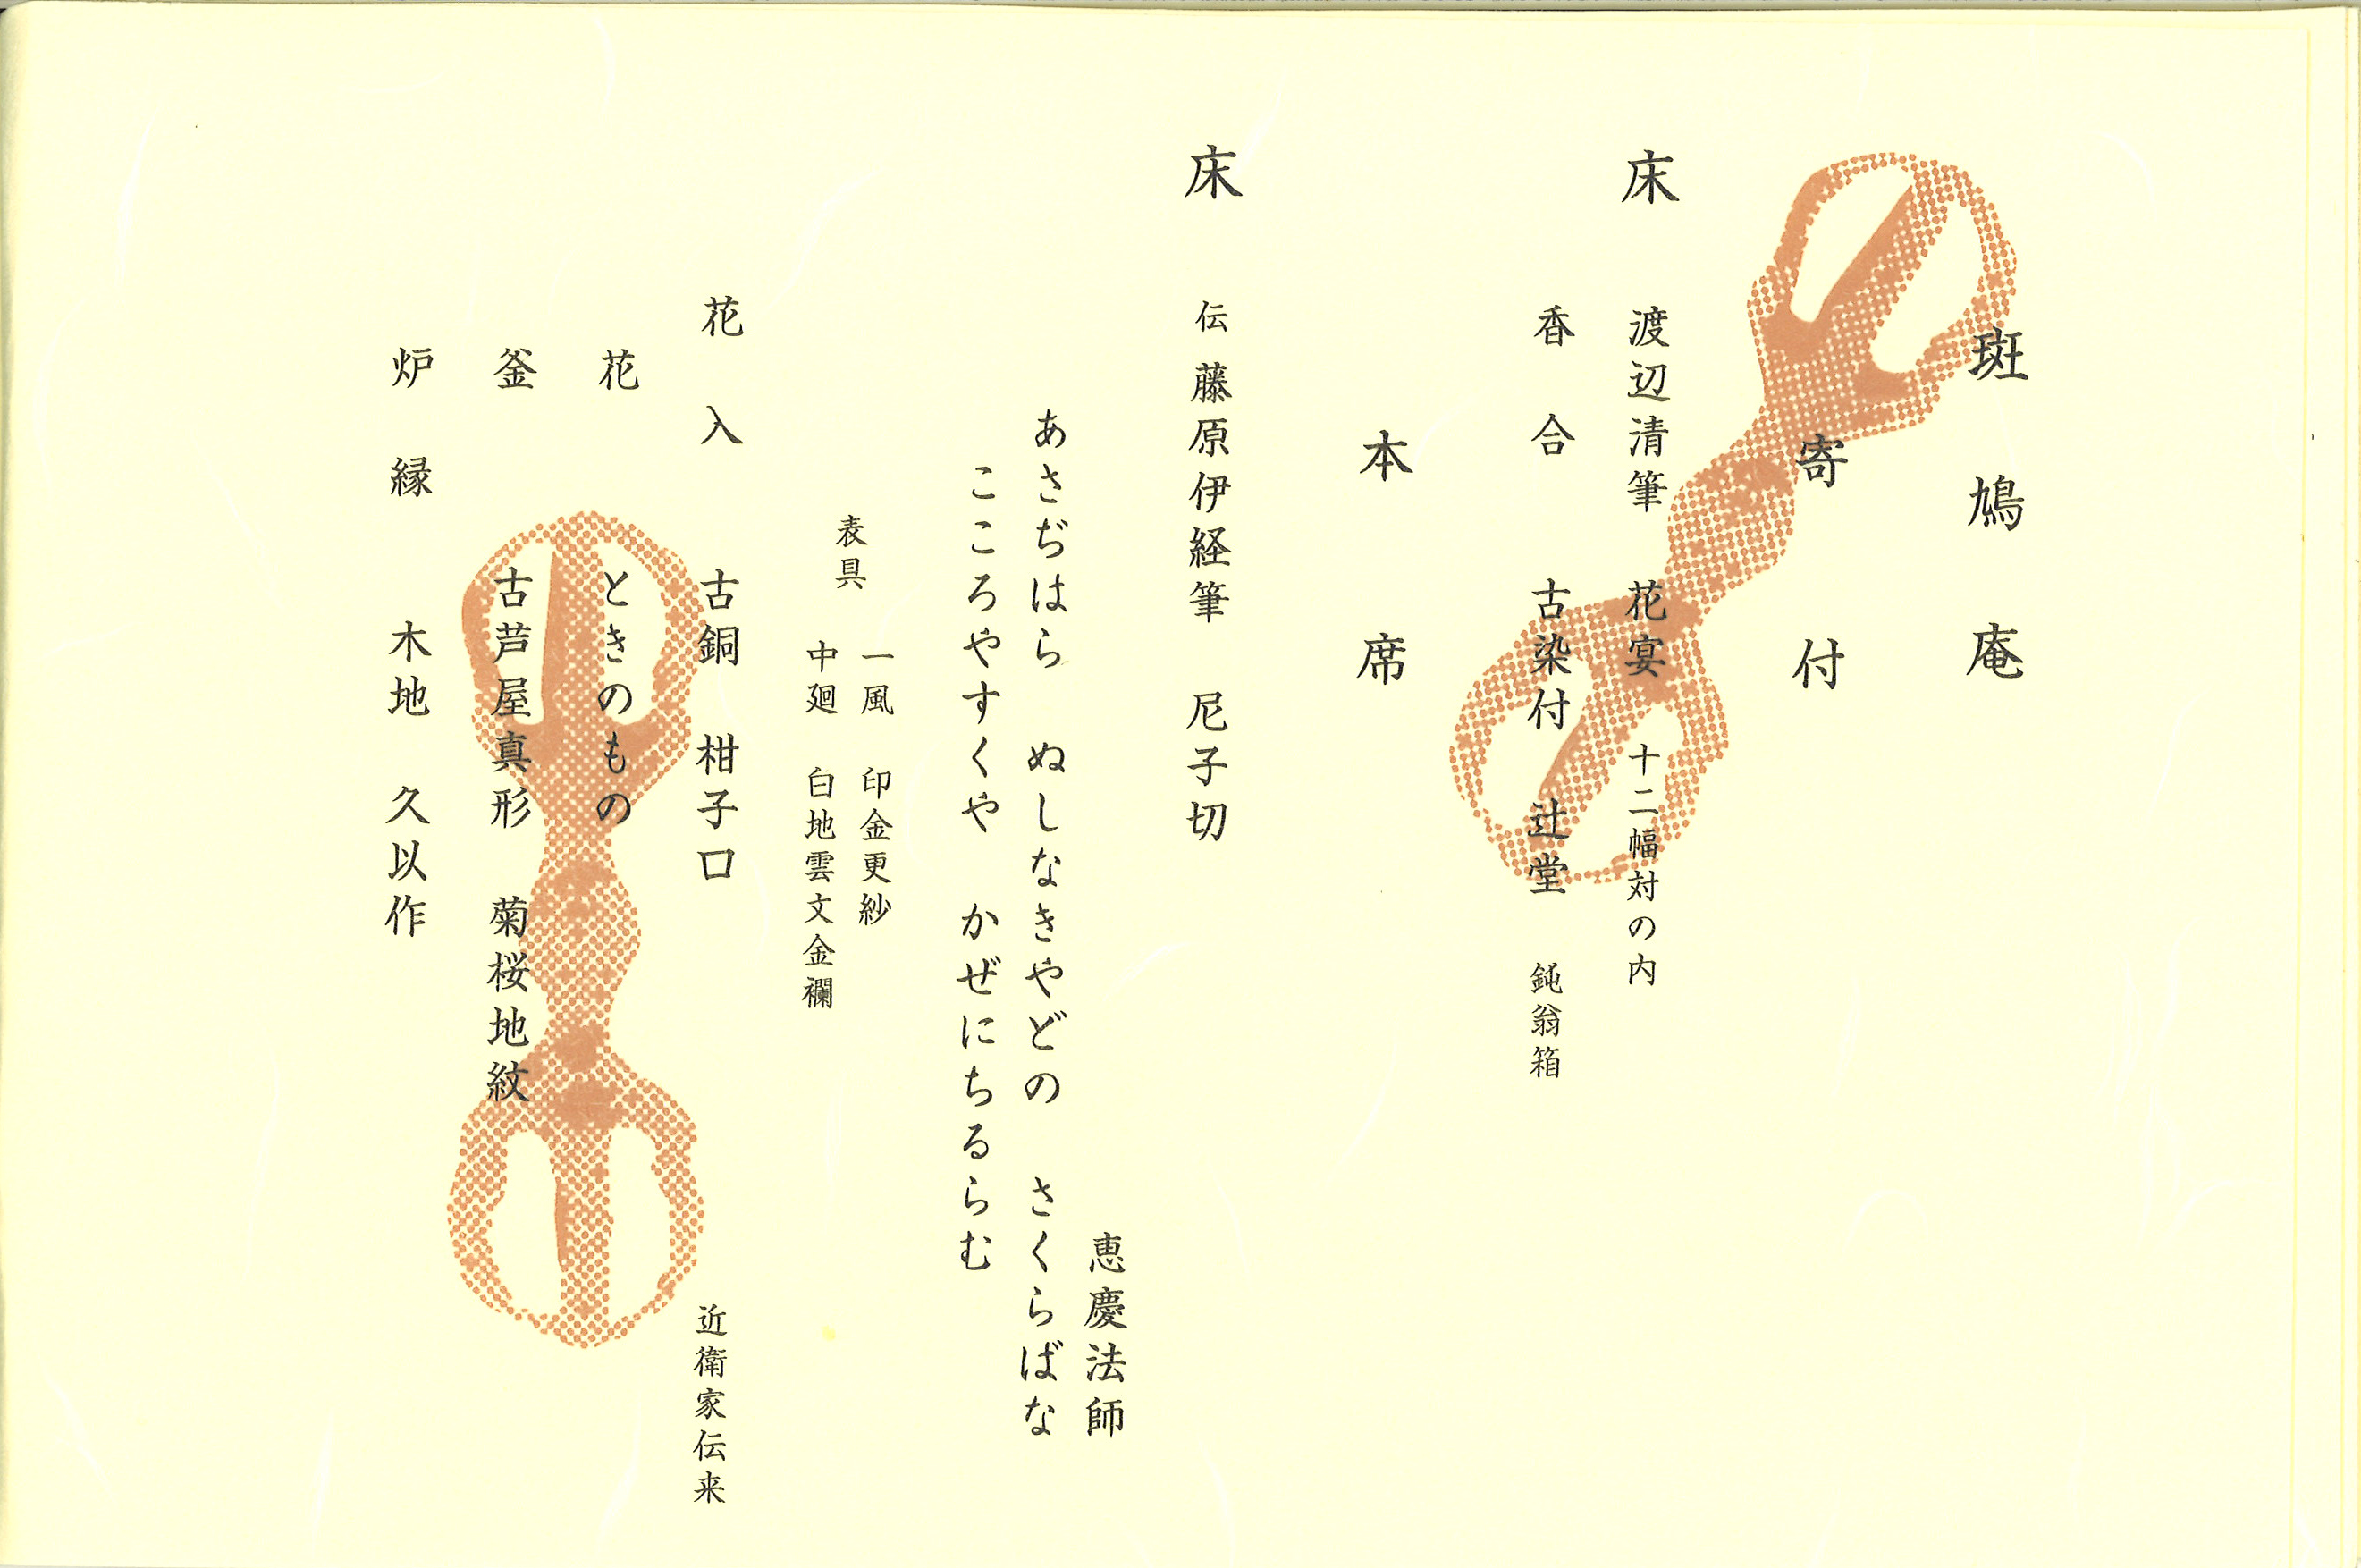 斑鳩庵
寄付
床 渡辺清筆 花宴 十二幅対の内
香合 古染付 辻堂 鈍翁箱
本席
床 伝 藤原伊経筆 尼子切
恵慶法師
あさぢはら ぬしなきやどの さくらばな
こころやすくや かぜにちるらむ
表具 一風 印金更紗
中廻 白地雲文金襴
花入 古銅 柑子口 近衛家伝来
花 ときのもの
釜 古芦屋真形 菊桜地紋
炉縁 木地 久以作